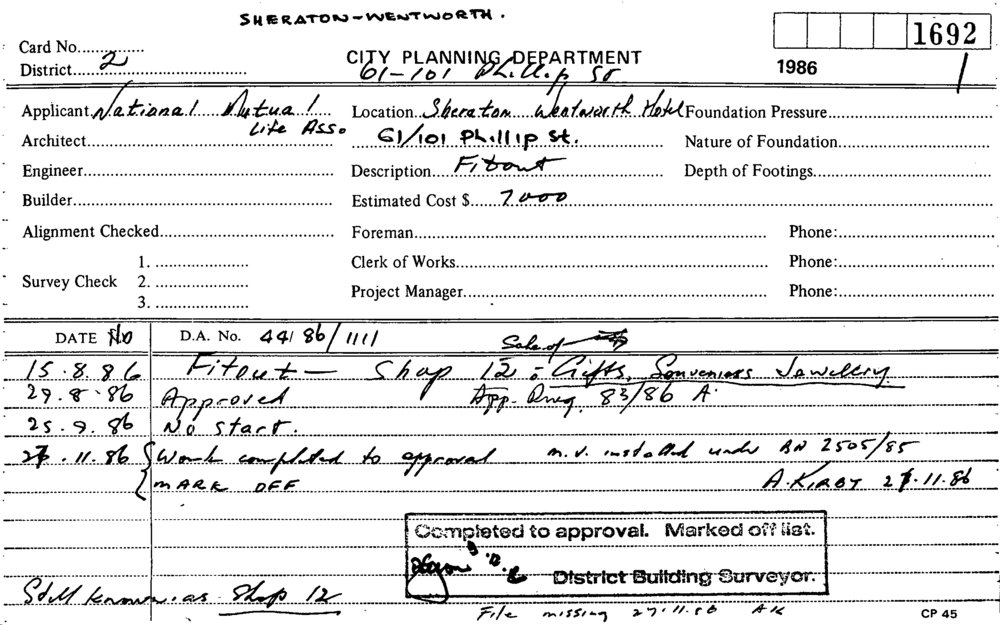 SHERATON-WENTWORTH.
1692
Card No..............
CITY PLANNING DEPARTMENT
1986
1
District 2
61-101 Phillip St
Applicant National Mutual Life Asso
Location Sheraton Wentworth Hotel
Foundation Pressure
Architect
61/101 Phillip St.
Nature of Foundation
Engineer
Description Fitout
Depth of Footings
Builder
Estimated Cost $ 7000
Alignment Checked
Foreman
Phone:
Survey Check
1.
2.
3.
Clerk of Works
Phone:
Project Manager
Phone:
DATE No
D.A. No. 44/86/1111
Sale of
15.8.86 Fitout - Shop 12 - Gifts, Souveniers Jewellery
29.8.86 Approved App. Dwg. 83/86 A
25.9.86 No start.
27.11.86 Work completed to approval m.v. installed under BN 2505/85
MARK OFF A. KIRBY 27.11.86
Completed to approval. Marked off list.
District Building Surveyor.
Still known as Shop 12
File missing 27.11.86 AK
CP 45